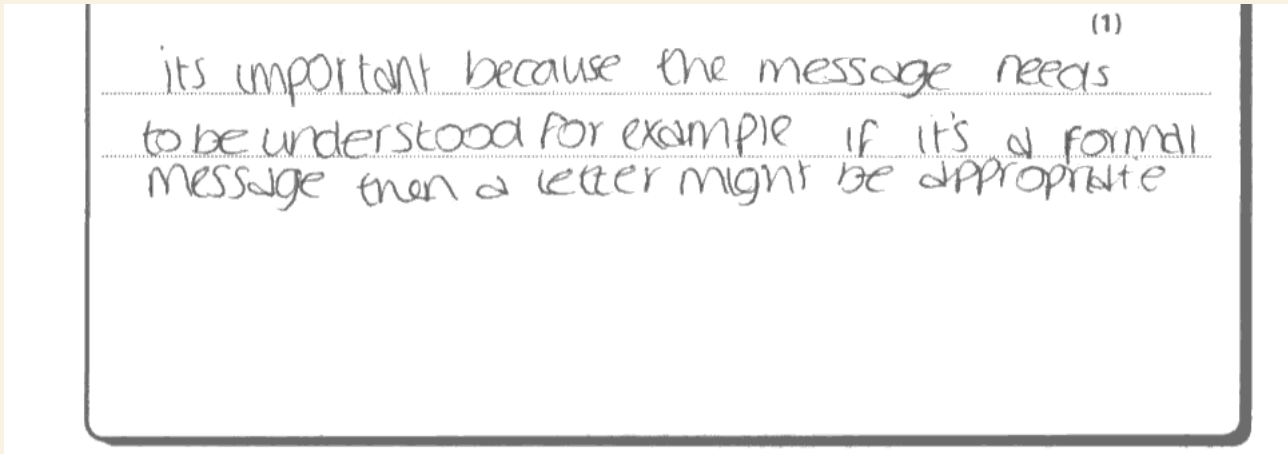 (1)
its important because the message needs
to be understood for example if it's a formal
message then a letter might be appropriate